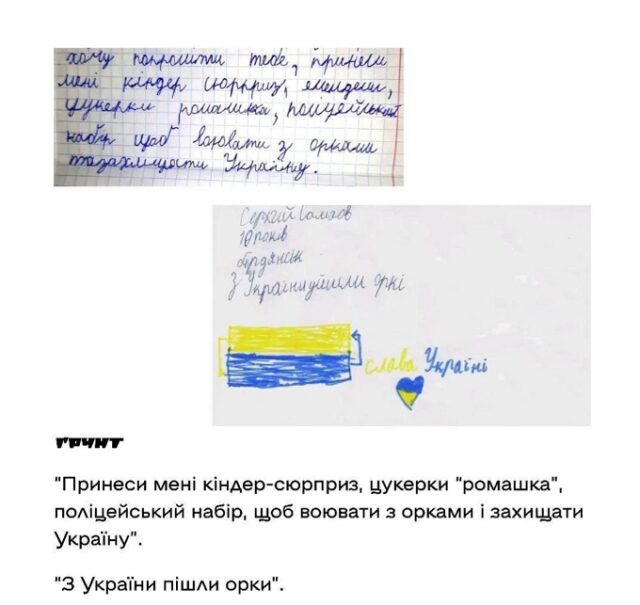 хочу попросити тебе, принеси
мені кіндер сюрприз, емендеми,
цукерки ромашка, поліцейський
набір щоб воювати з орками
та захищати Україну.
Сергій
10 років
Бердянськ
З України йшли оркі
слава Україні
ГРУНТ
"Принеси мені кіндер-сюрприз, цукерки "ромашка",
поліцейський набір, щоб воювати з орками і захищати
Україну".
"З України пішли орки".